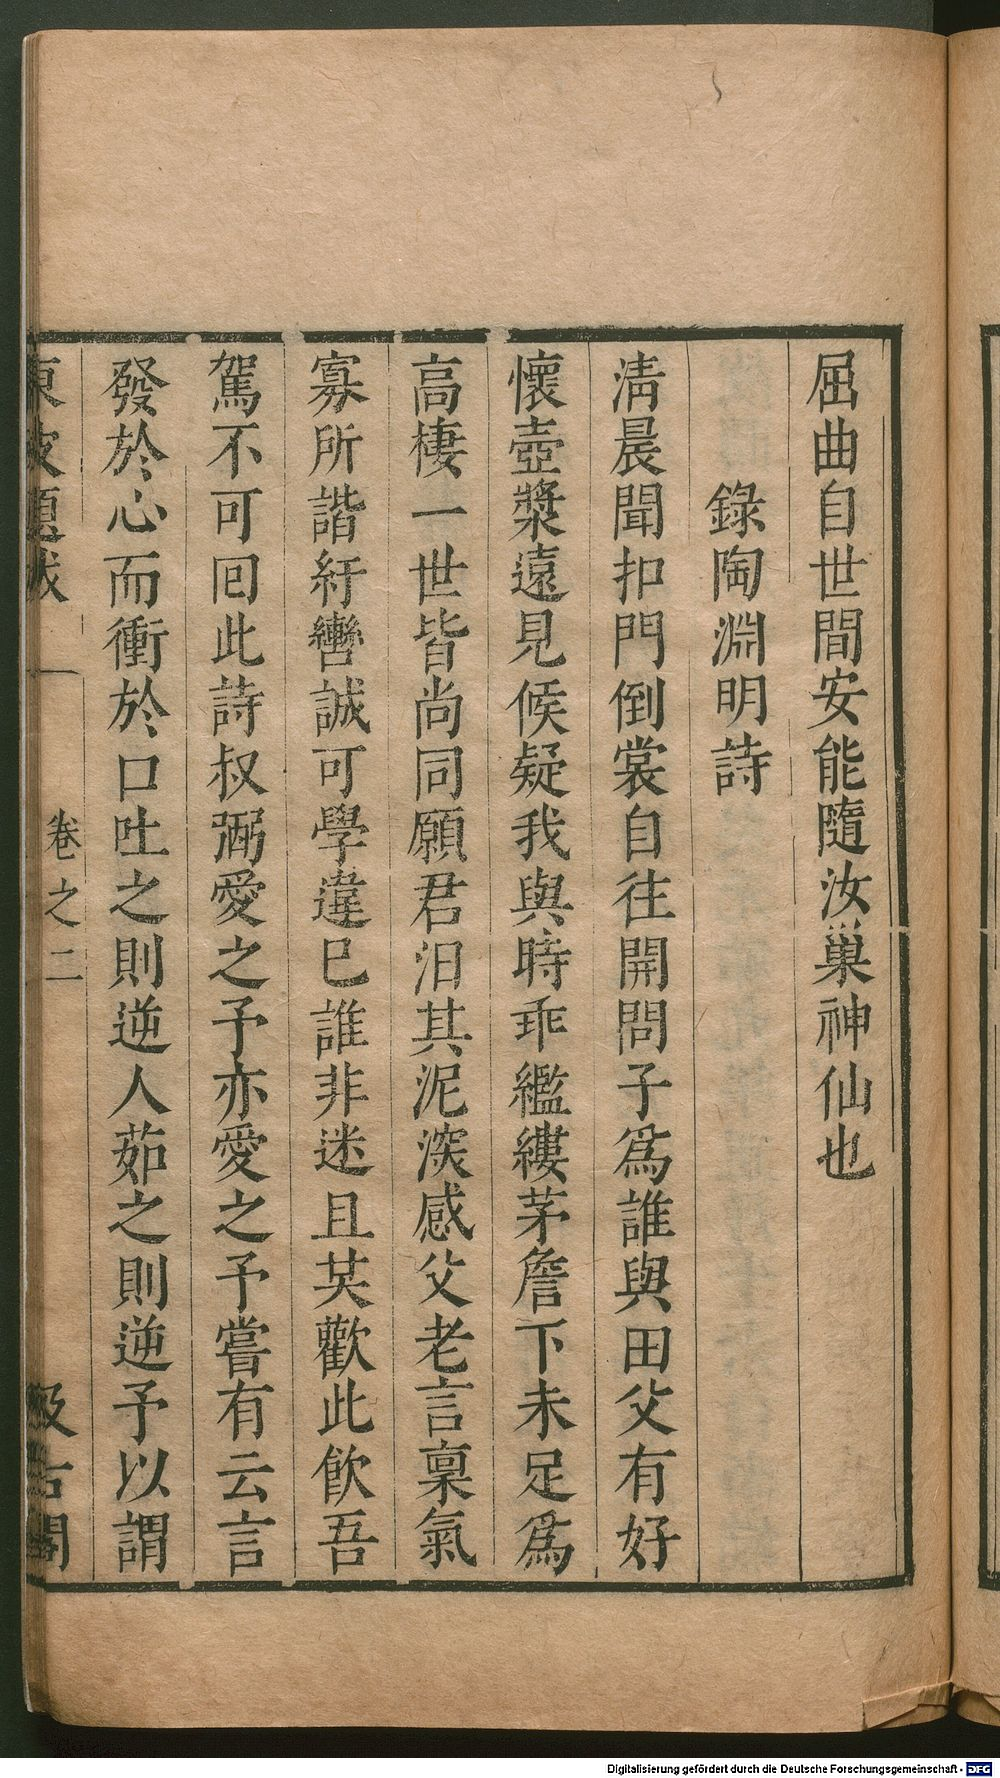 屈曲自世間安能隨汝巢神仙也
錄陶淵明詩
淸晨聞扣門倒裳自往開問子爲誰與田父有好
懷壺漿遠見候疑我與時乖繿縷茅詹下未足爲
高棲一世皆尚同願君汨其泥深感父老言稟氣
寡所諧紆轡誠可學違已誰非迷且共歡此飮吾
駕不可囘此詩叔弼愛之予亦愛之予嘗有云言
發於心而衝於口吐之則逆人茹之則逆予以謂
東坡題跋 卷之二 汲古閣
Digitalisierung gefördert durch die Deutsche Forschungsgemeinschaft - DFG